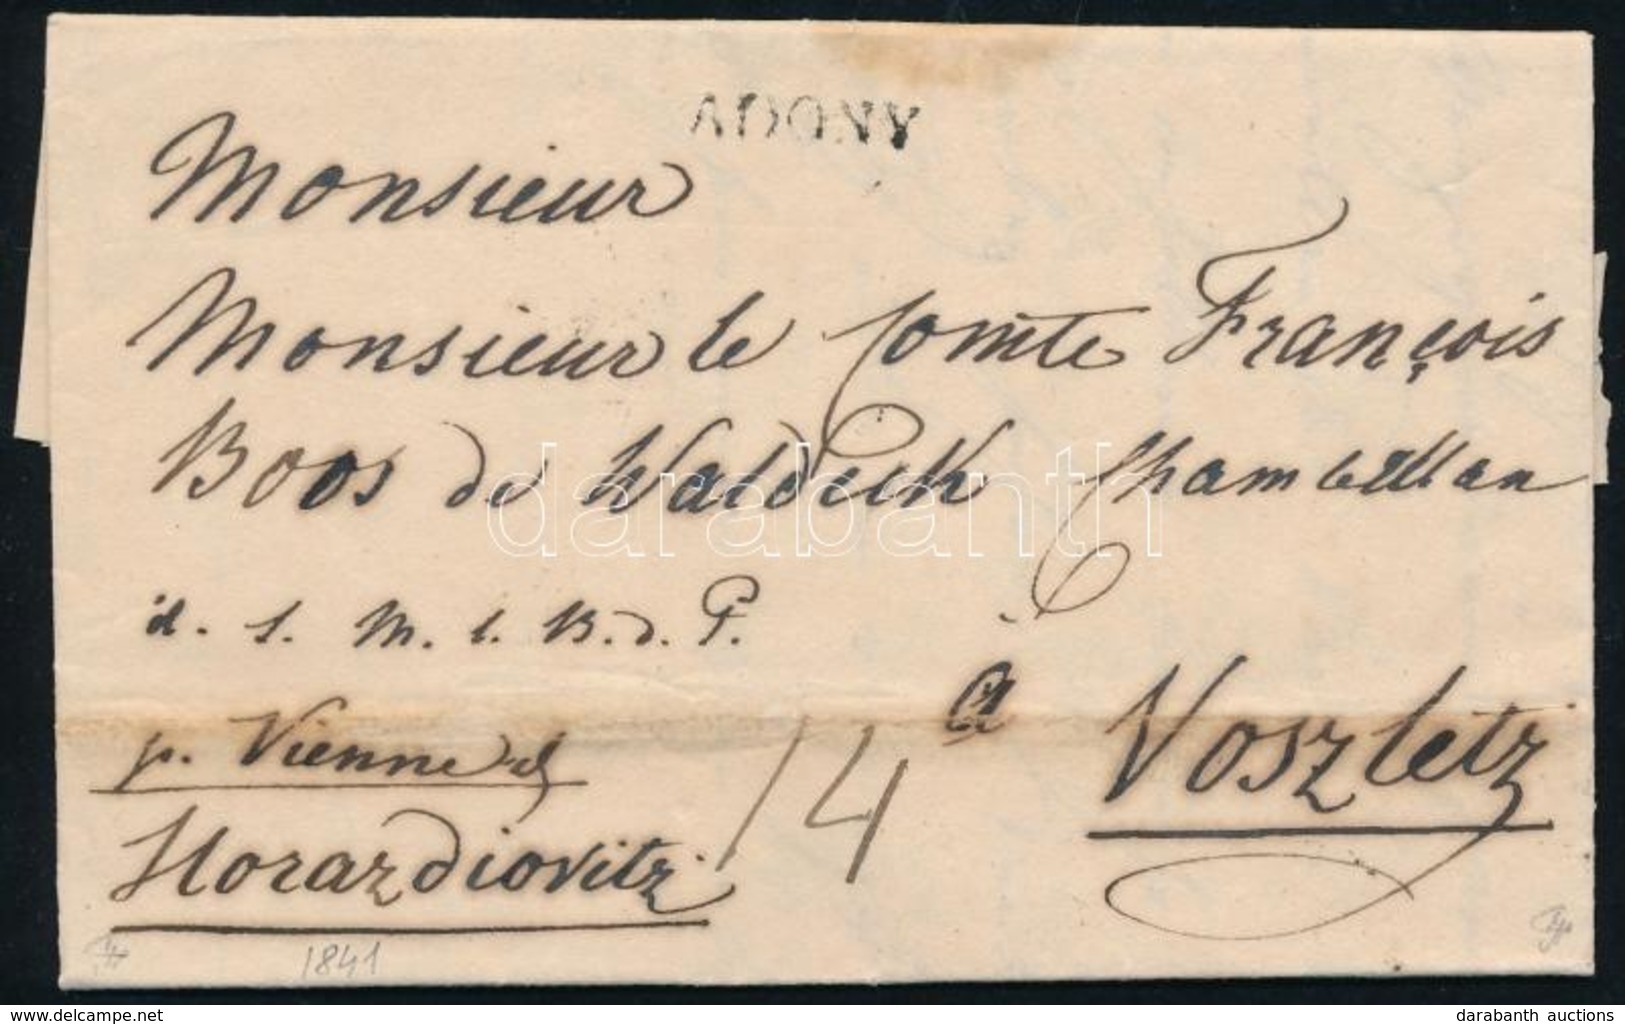 ADONY
Monsieur
Monsieur le Comte François
Boos de Waldeck Chambellan
d. S. M. l. B. d. P.
p. Vienne et
Horazdiovitz
14
à Voszletz
1841
darabanth
www.delcampe.net
darabanth auctions